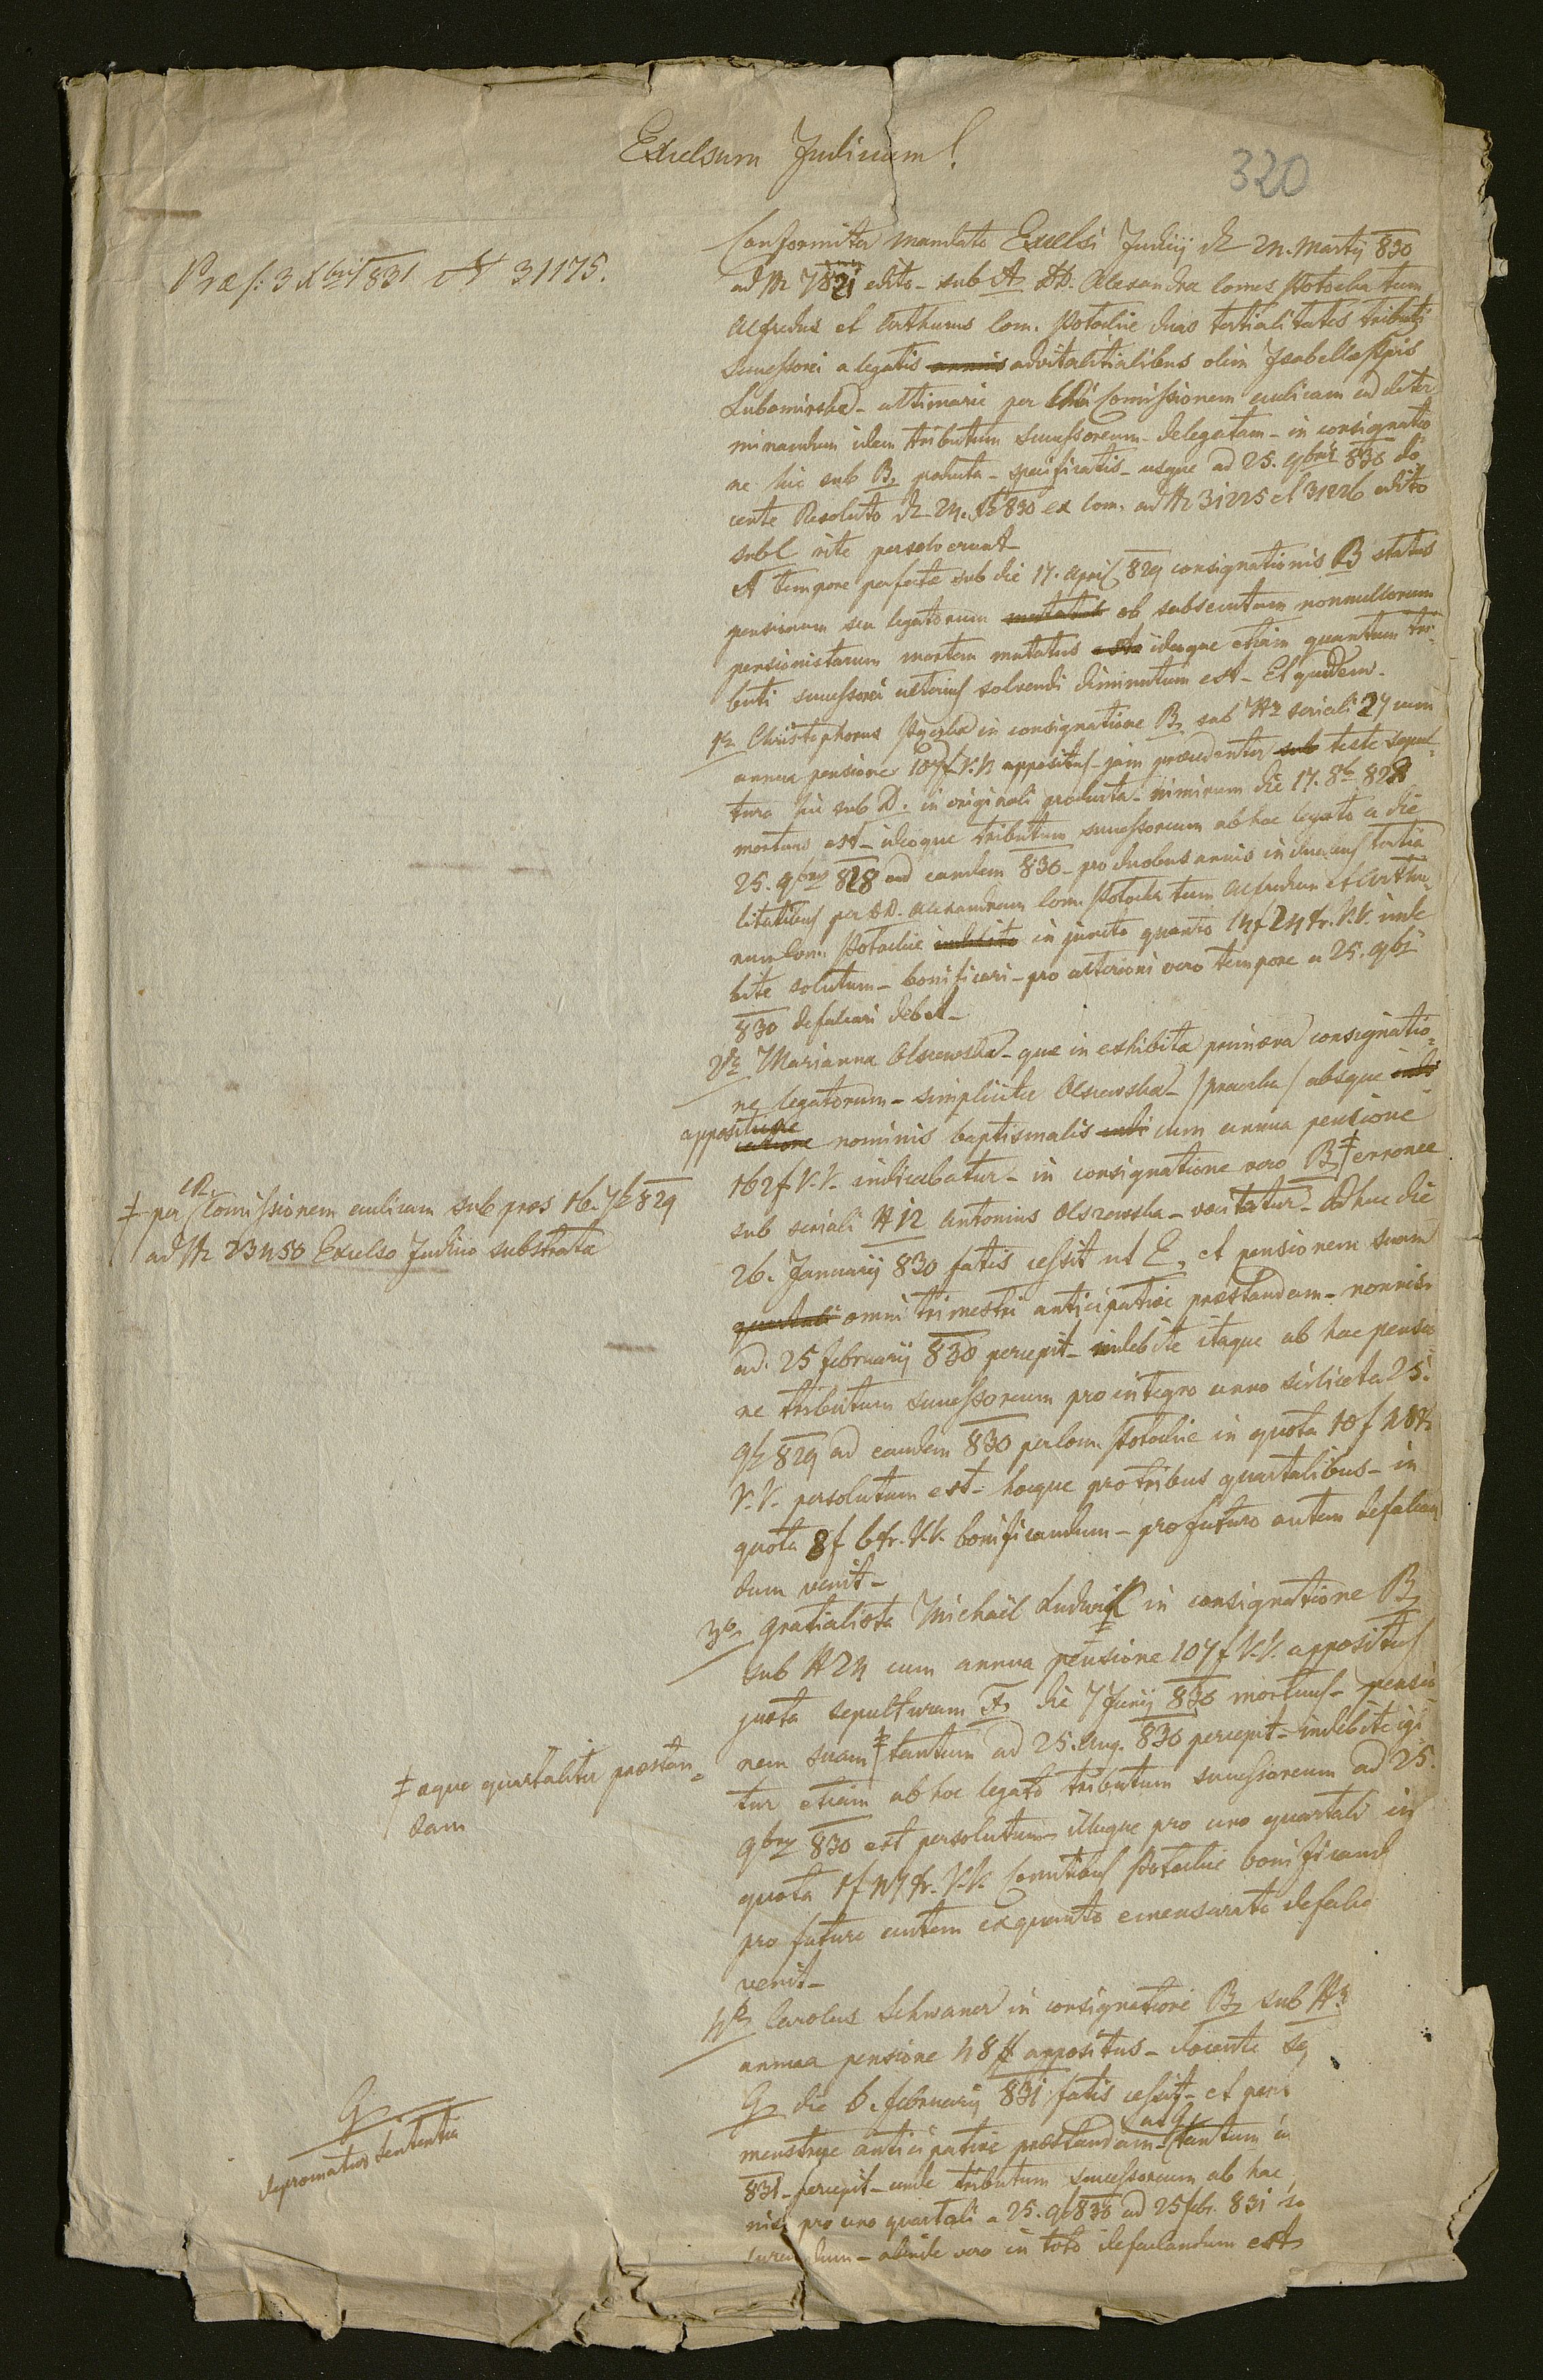 Excelsum Judicium!
320
Præs: 3 Xbris 831 N 31175.
Conformiter mandato Excelsi Judicii de 24. Martij 830
ad Nr 7821 edito - sub A. DD. Alexandra Comes Potocka tum
Alfredus et Arthurus Com. Potockie duas tertialitates tributi
Successorei a legatis advitalitialibus olim Isabellæ Ppis
Lubomirska - altimarie per CR Comissionem aulicam ad deter
minandum idem tributum successoreum - delegatam - in consignatio
ne hic sub B. specificatis - usque ad 25. 9bris 830 do
cente Resoluto de 24. 830 ex Com. ad Nr 31225 et 31226 edito
sub C rite persolverunt -
A tempore perfectæ sub die 17. April 829 consignationis B status
pensionum seu legatorum ob subsecutam nonnullorum
pensionistarum mortem mutatus ideoque etiam quantum tri-
buti successorei ulterius solvendi diminutum est - Et quidem.
1o Christophorus in consignatione B. sub Nr seriali 27 cum
annua pensione 107 f V.V. appositus - jam præcedenter teste sepul-
tura hic sub D. in originali producta - nimirum die 17. 8b 828
mortuus est - ideoque tributum successoreum ab hoc legato a die
25. 9bris 828 ad eandem 830 - pro duobus annis in duabus tertia
litatibus per DD. Alexandram Com. Potocka tum Alfredum et Arthu-
rum Com. Potockie in juncto quanto 14 f 24 Xr. V.V. inde
bite solutum - bonificari - pro ulteriori vero tempore a 25. 9br
830 defalcari debet -
2o Marianna Olszewska - quæ in exhibita primæva consignatio-
ne legatorum - simpliciter Olszewska / absque
appositione nominis baptismalis cum annua pensione
162 f V.V. indicabatur - in consignatione vero B ‡ erronee
sub seriali N 12 Antonius Olszewska - vocitatur - adhuc die
26. Januarij 830 fatis cessit ut E, et pensionem suam
omni trimestri anticipative præstandam - nonnisi
ad 25 februarij 830 percepit - indebite itaque ab hac pensio
ne tributum successoreum pro integro anno scilicet a 25.
9b 829 ad eandem 830 per Com. Potockie in quota 10 f 48 Xr
V.V. persolutum est - hocque pro tribus quartalibus - in
quota 8 f 6 Xr. V.V. bonificandum - pro futuro autem defalcan
dum venit -
‡ per CR Comissionem aulicam sub præs 16. 7b 829
ad Nr 23450 Excelso Judicio substrata
3o gratialista Michaël Ludwik in consignatione B
sub N 24 cum annua pensione 107 f V.V. appositus
juxta sepulturam F. die 7 Junij 830 mortuus - pensio
nem suam ‡ tantum ad 25. Aug. 830 percepit - indebite igi
tur etiam ab hoc legato tributum successoreum ad 25.
9bris 830 est persolutum - illuque pro uno quartali in
quota 1 f 47 Xr. V.V. Comitibus Potockie bonificand
pro futuro autem ex quanto emensurato defalc
venit -
‡ æque quartaliter præstan-
dam
4o Carolus Schwaner in consignatione B sub N 3
annua pensione 48 # appositus - docente se
G die 6. februarij 831 fatis cessit - et pens
menstrue anticipative præstandam - tantum
831 - percepit - unde tributum successoreum ab hac
nisi pro uno quartali a 25. 9b 830 ad 25 febr. 831 so
dum - abinde vero in toto defalcandum est
G
depromatur sententia